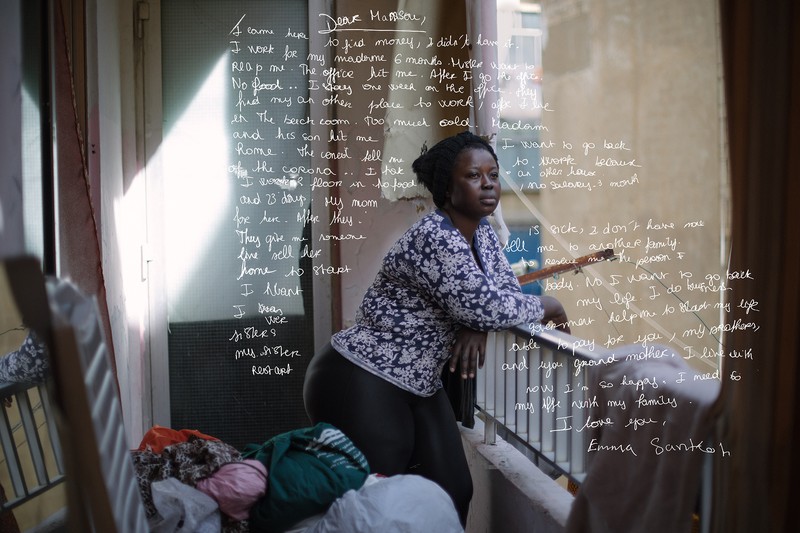 Dear Mammou,
I came here to find money, I didn't have it.
I work for my madamme 6 months. Mister want to
reap me. The office hit me. After I go the office.
No food.. I stay one week on the office. they
find my an other place to work, after I
in the beach room. Too much cold. Madam
and his son hit me. I want to go back
Rome. The coned tell me to work because
of the corona.. I took an other house
I work 2 floor in no food, no salary. 3 month
and 23 days. My mom is sick, I don't have no
for her. After they sell me to another family.
They give me someone to the person I
live sell her body. No I want to go back
home to start my life. I do business
I want government help me to start my life
I was able to pay for you, my brothers,
sisters and you ground mother. I live with
my sister now I'm so happy. I need to
restart my life with my family.
I love you,
Emma